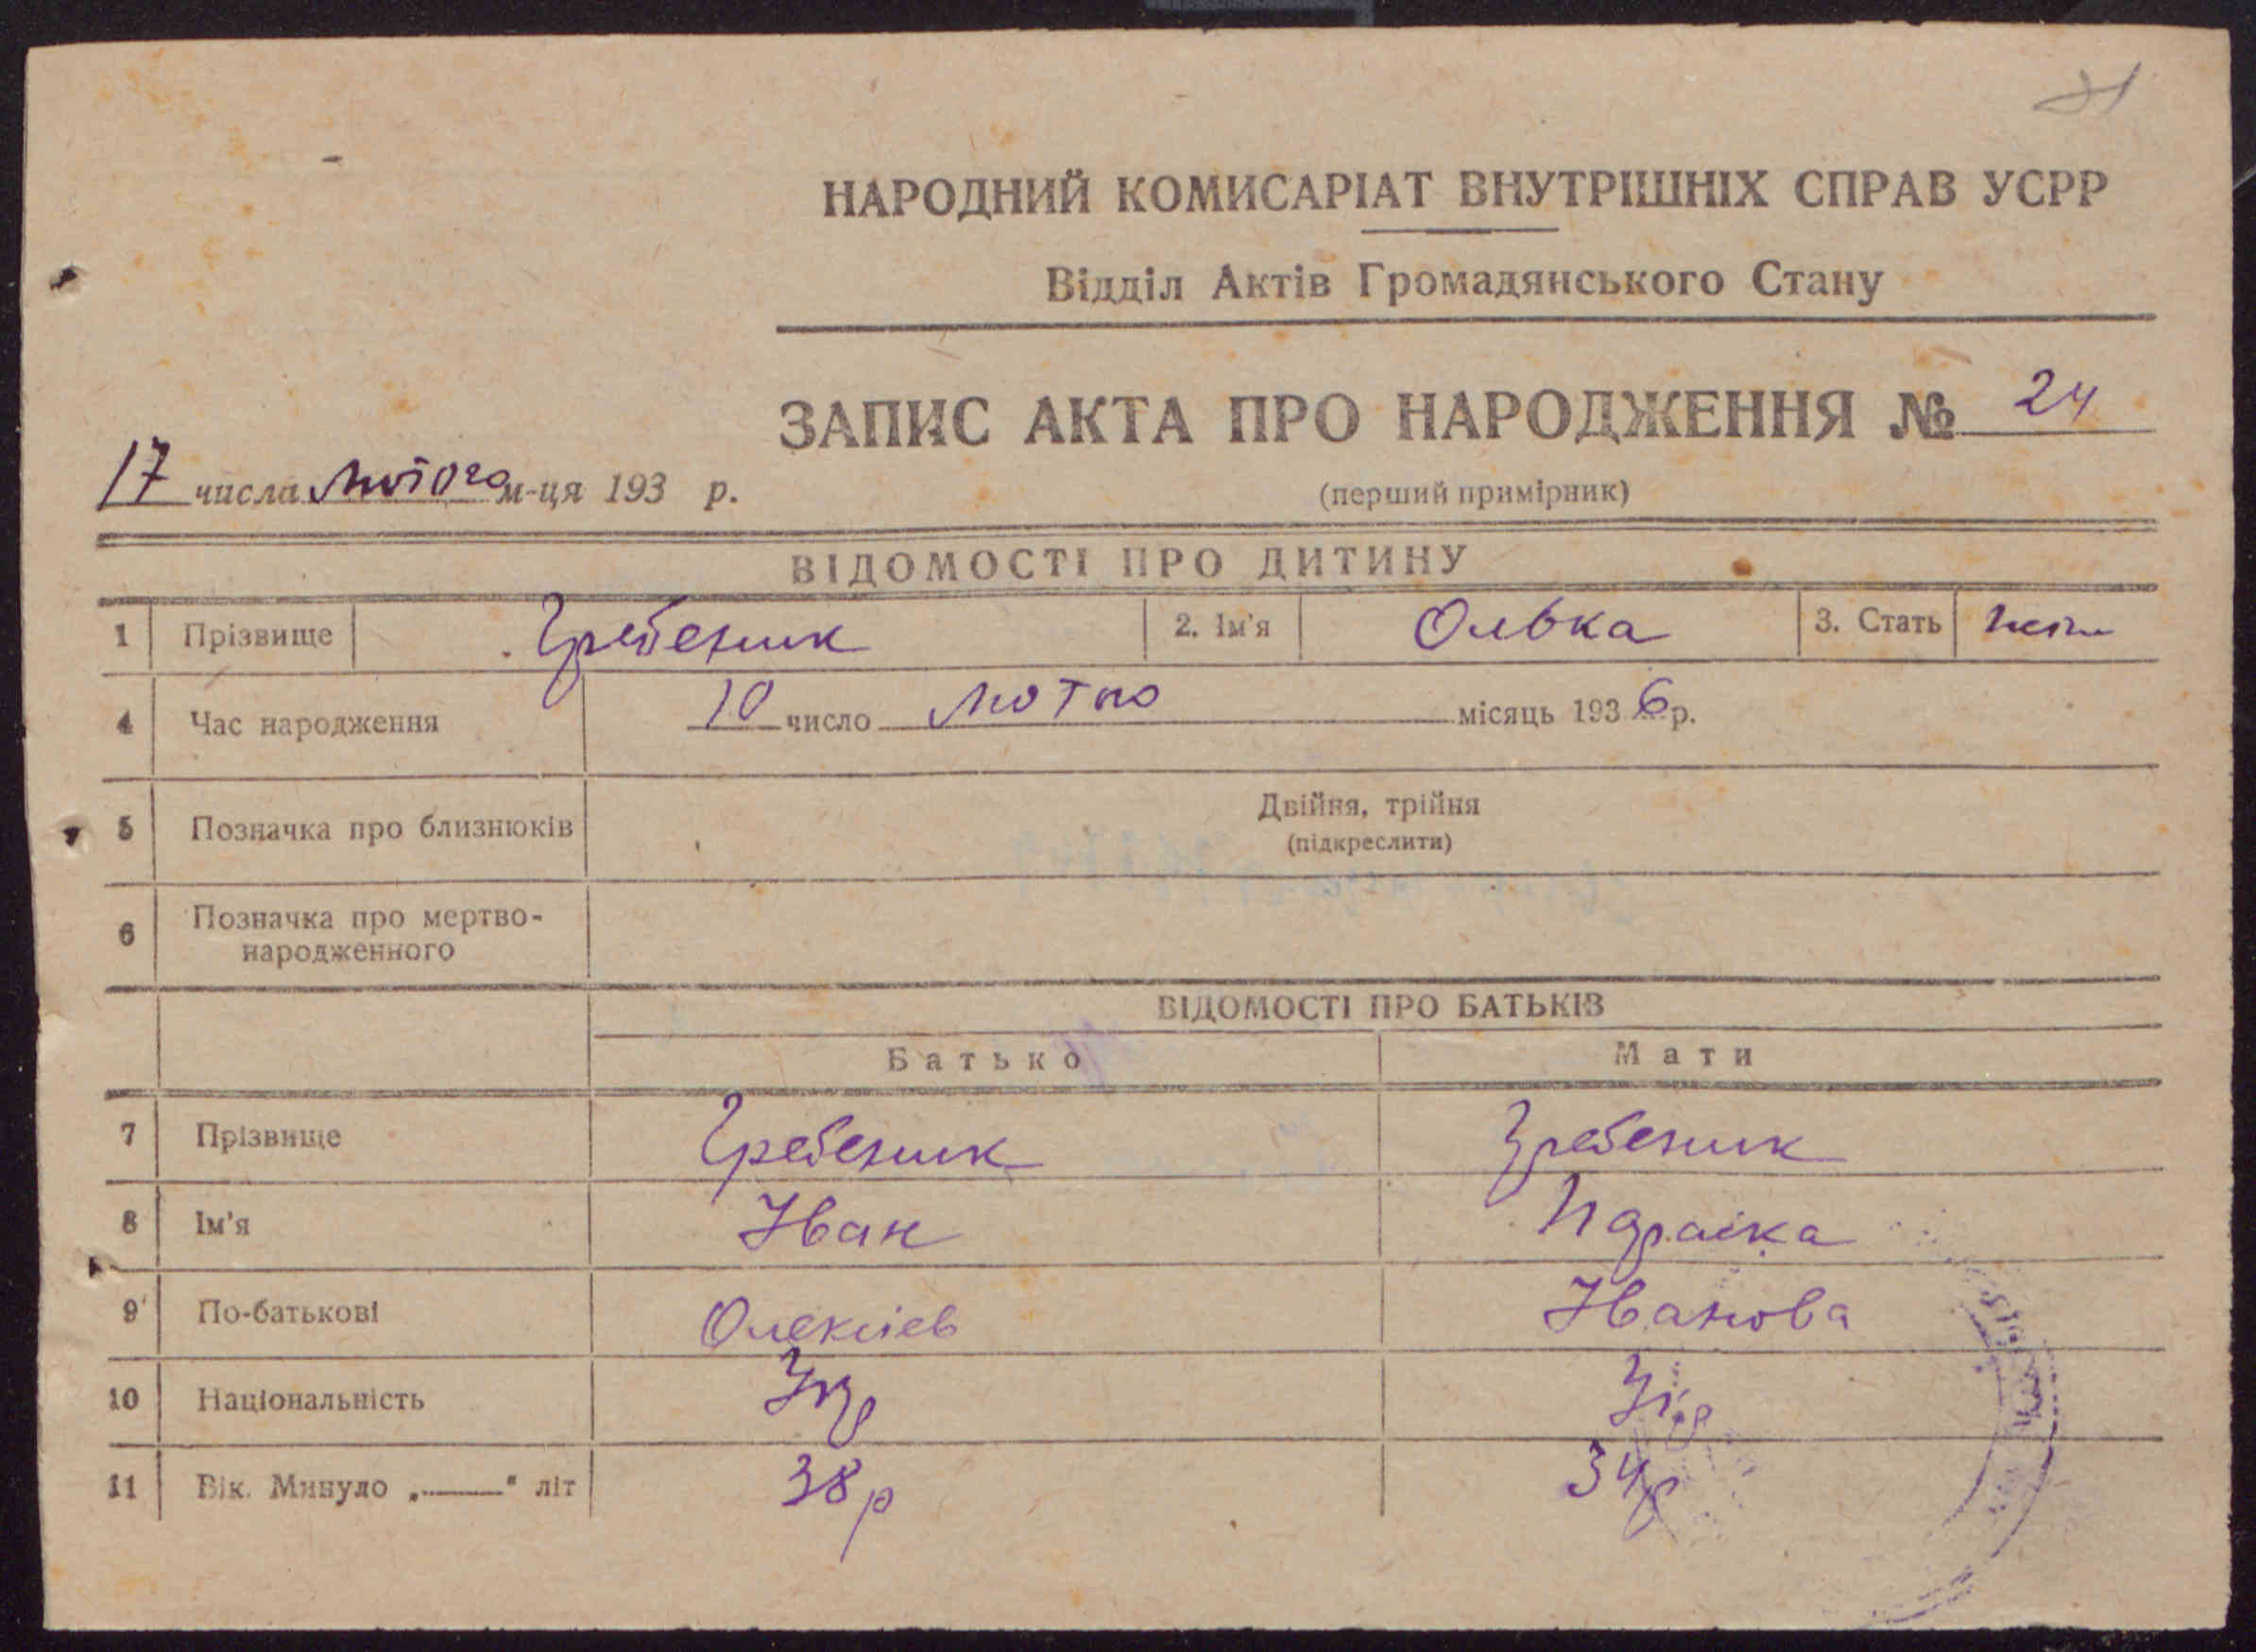 НАРОДНИЙ КОМИСАРІАТ ВНУТРІШНІХ СПРАВ УСРР
Відділ Актів Громадянського Стану
ЗАПИС АКТА ПРО НАРОДЖЕННЯ № 24
17 числа лютого м-ця 193 р.
(перший примірник)
ВІДОМОСТІ ПРО ДИТИНУ
1 Прізвище Гребеник 2. Ім'я Олька 3. Стать жін
4 Час народження 10 число лютого місяць 1936 р.
5 Позначка про близнюків Двійня, трійня
(підкреслити)
6 Позначка про мертво-
народженного
ВІДОМОСТІ ПРО БАТЬКІВ
Батько Мати
7 Прізвище Гребеник Гребеник
8 Ім'я Іван
9 По-батькові Олексієв Іванова
10 Національність Укр Укр
11 Вік. Минуло „——“ літ 38 р 34 р